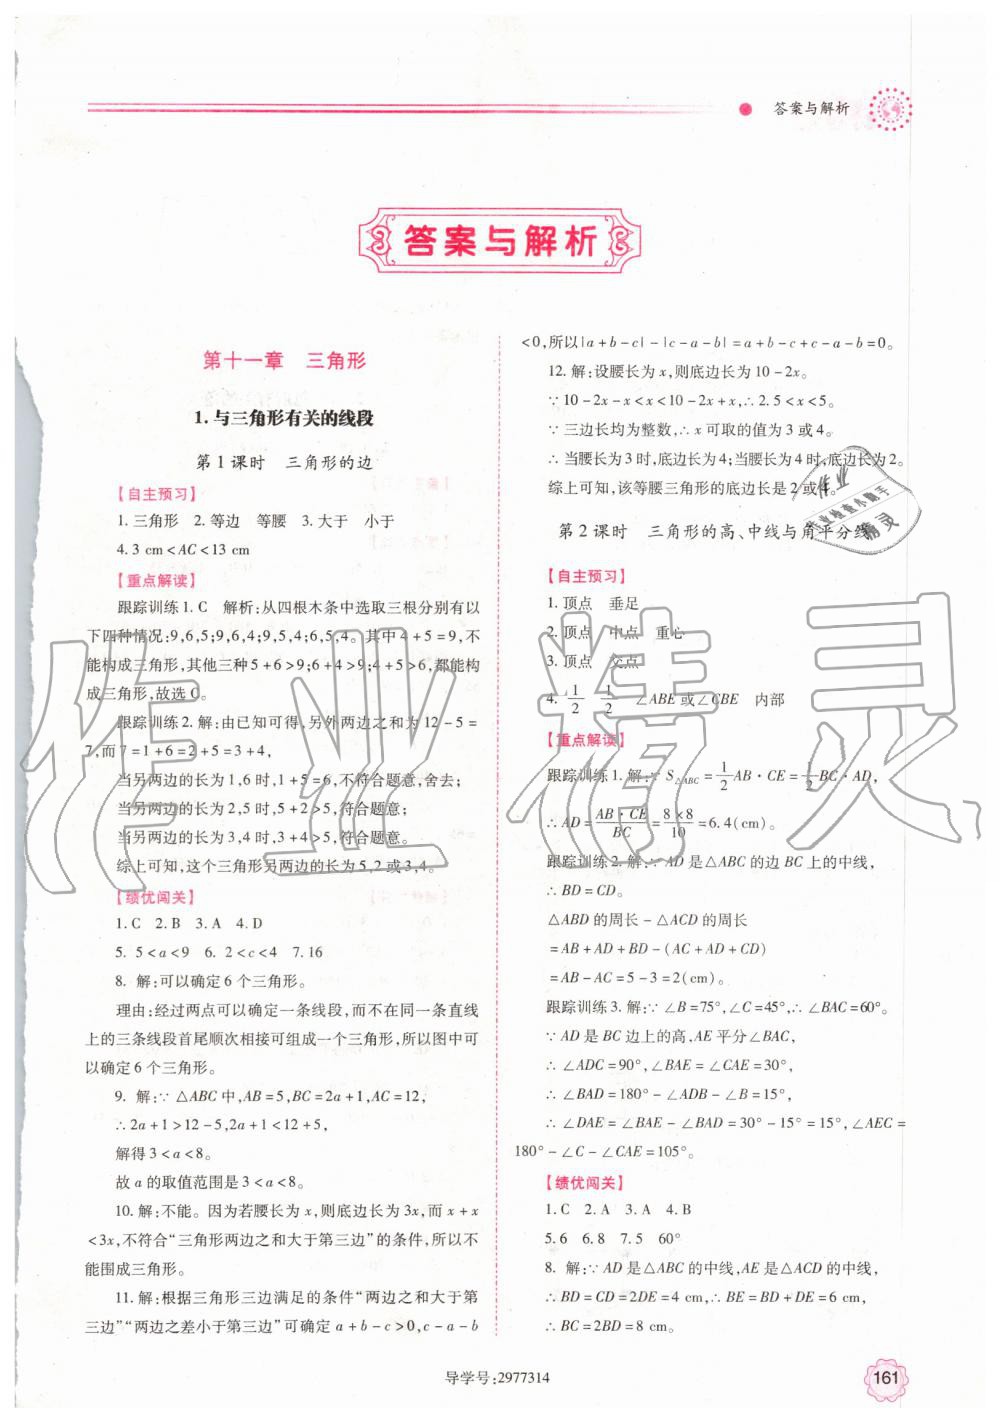 答案与解析
答案与解析
第十一章 三角形
1.与三角形有关的线段
第1课时 三角形的边
【自主预习】
1.三角形 2.等边 等腰 3.大于 小于
4.3 cm<AC<13 cm
【重点解读】
跟踪训练1.C 解析:从四根木条中选取三根分别有以
下四种情况:9,6,5;9,6,4;9,5,4;6,5,4。其中4+5=9,不
能构成三角形,其他三种5+6>9;6+4>9;4+5>6,都能构
成三角形,故选C。
跟踪训练2.解:由已知可得,另外两边之和为12-5=
7,而7=1+6=2+5=3+4,
当另两边的长为1,6时,1+5=6,不符合题意,舍去;
当另两边的长为2,5时,5+2>5,符合题意;
当另两边的长为3,4时,3+4>5,符合题意。
综上可知,这个三角形另两边的长为5,2或3,4。
【绩优闯关】
1.C 2.B 3.A 4.D
5. 5<a<9 6. 2<c<4 7.16
8. 解:可以确定6个三角形。
理由:经过两点可以确定一条线段,而不在同一条直线
上的三条线段首尾顺次相接可组成一个三角形,所以图中可
以确定6个三角形。
9. 解:∵△ABC中,AB=5,BC=2a+1,AC=12,
∴2a+1>12-5,2a+1<12+5,
解得3<a<8。
故a的取值范围是3<a<8。
10.解:不能。因为若腰长为x,则底边长为3x,而x+x
<3x,不符合“三角形两边之和大于第三边”的条件,所以不
能围成三角形。
11.解:根据三角形三边满足的条件“两边之和大于第
三边”“两边之差小于第三边”可确定a+b-c>0,c-a-b
<0,所以|a+b-c|-|c-a-b|=a+b-c+c-a-b=0。
12.解:设腰长为x,则底边长为10-2x。
∵10-2x-x<x<10-2x+x,∴2.5<x<5。
∵三边长均为整数,∴x可取的值为3或4。
∴当腰长为3时,底边长为4;当腰长为4时,底边长为2。
综上可知,该等腰三角形的底边长是2或4。
第2课时 三角形的高、中线与角平分线
【自主预习】
1.顶点 垂足
2.顶点 中点 重心
3.顶点 交点
4. 1/2 1/2 ∠ABE或∠CBE 内部
【重点解读】
跟踪训练1.解:∵S△ABC=1/2AB·CE=1/2BC·AD,
∴AD=AB·CE/BC=8×8/10=6.4(cm)。
跟踪训练2.解:∵AD是△ABC的边BC上的中线,
∴BD=CD。
△ABD的周长-△ACD的周长
=AB+AD+BD-(AC+AD+CD)
=AB-AC=5-3=2(cm)。
跟踪训练3.解:∵∠B=75°,∠C=45°,∴∠BAC=60°。
∵AD是BC边上的高,AE平分∠BAC,
∴∠ADC=90°,∠BAE=∠CAE=30°,
∴∠BAD=180°-∠ADB-∠B=15°,
∴∠DAE=∠BAE-∠BAD=30°-15°=15°,∠AEC=
180°-∠C-∠CAE=105°。
【绩优闯关】
1.C 2.A 3.A 4.B
5.6 6.8 7.5 60°
8. 解:∵AD是△ABC的中线,AE是△ACD的中线,
∴BD=CD=2DE=4 cm,∴BE=BD+DE=6 cm,
∴BC=2BD=8 cm。
作业精灵
导学号:2977314
161